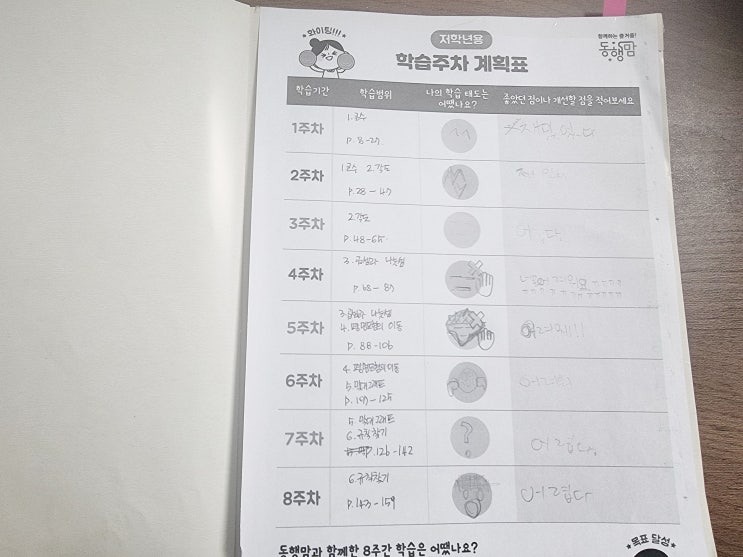 화이팅!!!
저학년용
학습주차 계획표
함께하는 즐거움!
동행맘
학습기간 학습범위 나의 학습 태도는 어땠나요? 좋았던 점이나 개선할 점을 적어보세요
1주차 1.큰수
P. 8-27
2주차 1.큰수 2.각도
P.28-47
3주차 2.각도
P.48-65
4주차 3.곱셈과 나눗셈
P.68-87
5주차 3.곱셈과 나눗셈
4.평면도형의 이동
P. 88-106 어려워!!
6주차 4.평면도형의이동
5.막대그래프
P.107-125
7주차 5.막대그래프
6.규칙찾기
P.126-142 어렵다.
8주차 6.규칙찾기
P.143-159 어렵다
동행맘과 함께한 8주간 학습은 어땠나요?
목표 달성